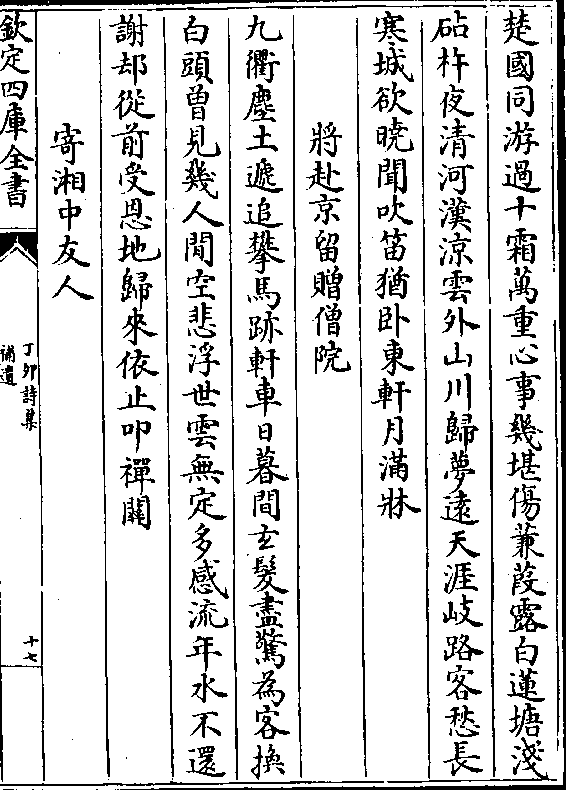 楚國同游過十霜萬重心事幾堪傷蒹葭露白蓮塘淺
砧杵夜清河漢涼雲外山川歸夢遠天涯岐路客愁長
寒城欲曉聞吹笛猶卧東軒月滿牀
將赴京留贈僧院
九衢塵土遞追攀馬跡軒車日暮間玄髮盡驚為客換
白頭曾見幾人閒空悲浮世雲無定多感流年水不還
謝却從前受恩地歸來依止叩禪關
寄湘中友人
欽定四庫全書
丁卯詩集
補遺
十七